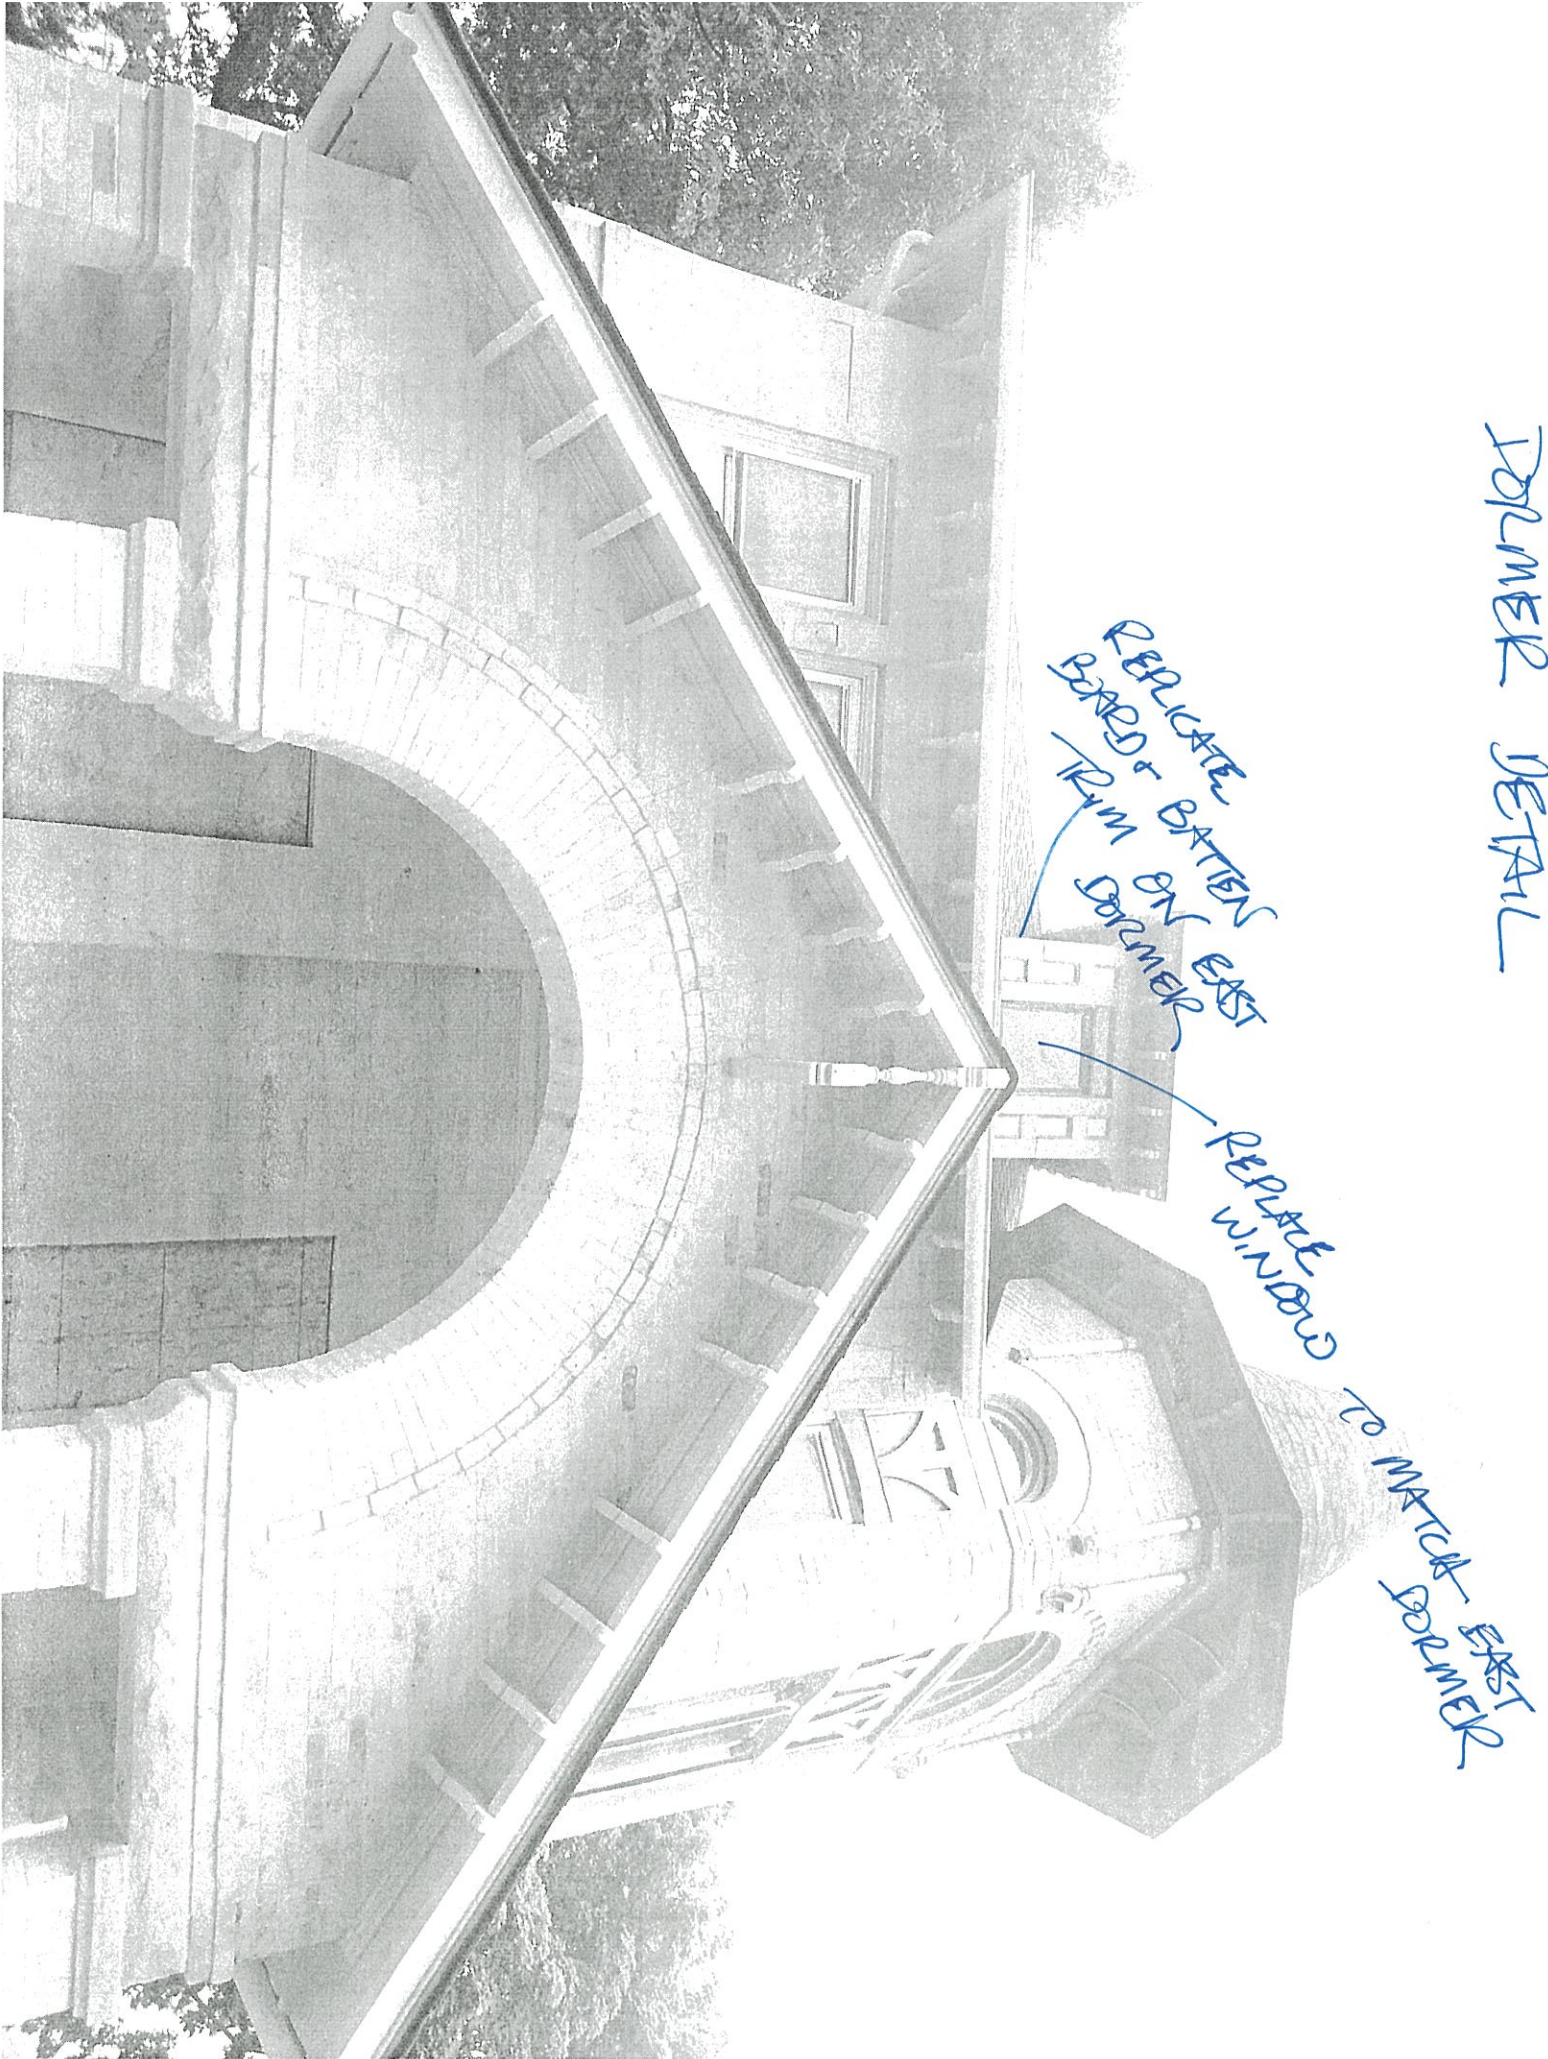 DORMER DETAIL
REPLICATE
BOARD & BATTEN
TRIM ON EAST
DORMER
REPLACE
WINDOW TO MATCH EAST
DORMER